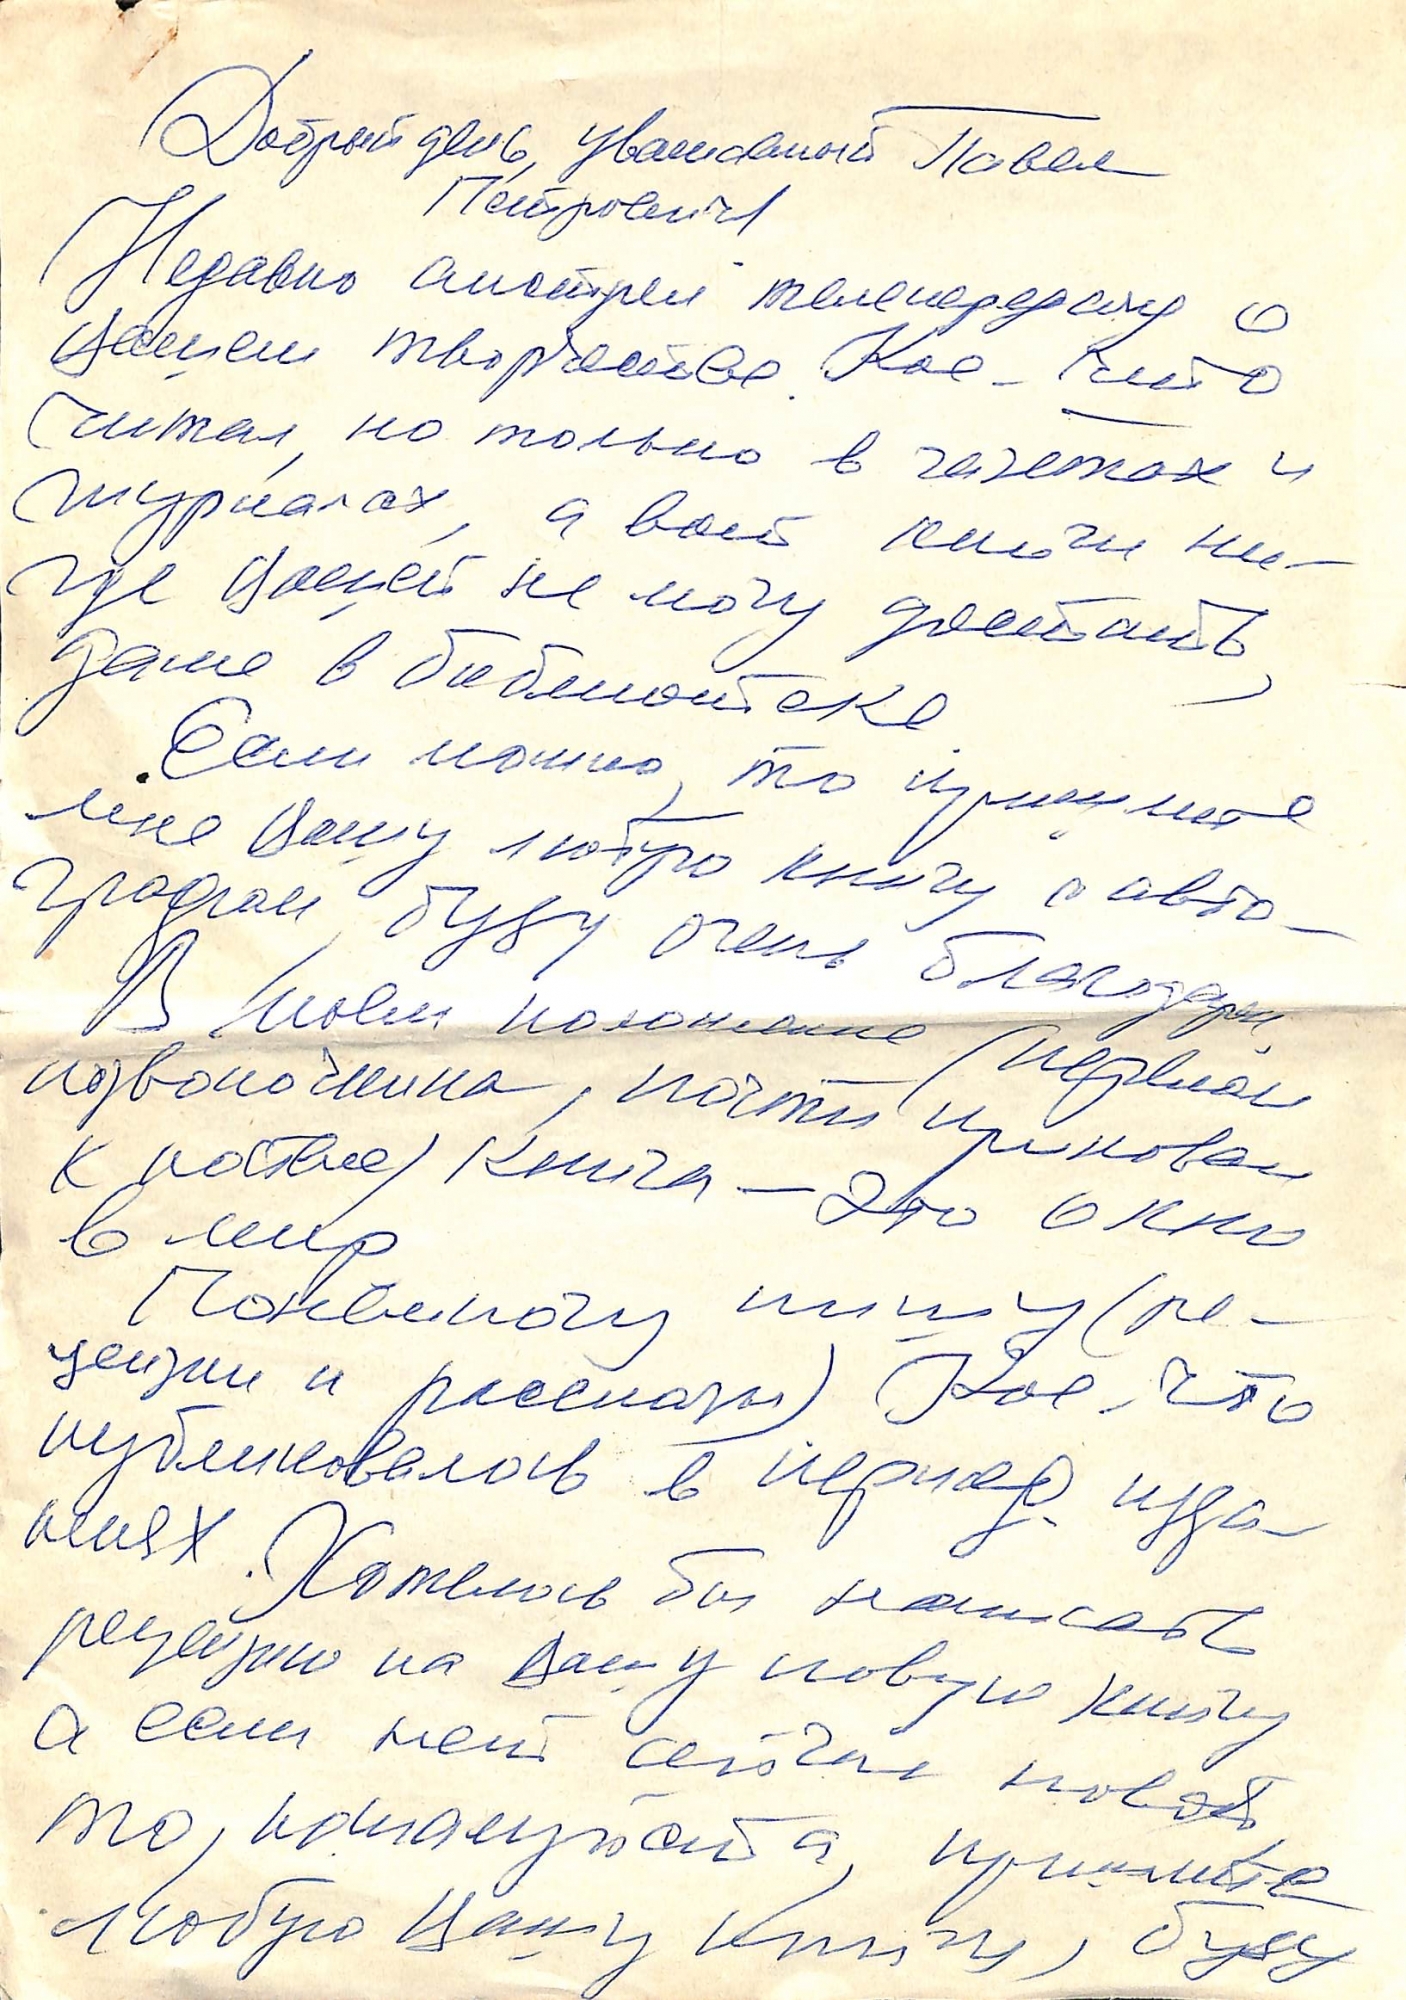 Добрый день, уважаемый Павел
Петрович
Недавно смотрел телепередачу о
Вашем творчестве. Кое-что
читал, но только в газетах и
журналах, а вот книги ни-
где Вашей не могу достать,
даже в библиотеке.
Если можно, то пришлите
мне Вашу любую книгу с авто-
графом, буду очень благодарен.
В моем положение (перелом
позвоночника, почти прикован
к постели) книга – это окно
в мир
Понемногу пишу (ре-
цензии и рассказы) Кое-что
публиковалось в период. изда-
ниях. Хотелось бы написать
рецензию на Вашу новую книгу
а если нет сейчас новой,
то, пожалуйста, пришлите
любую Вашу книгу, буду